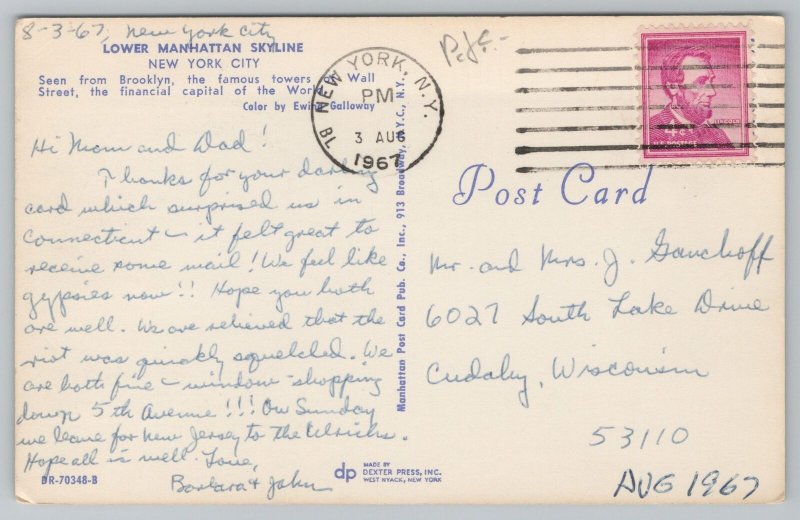 8-3-67, New York City
LOWER MANHATTAN SKYLINE
NEW YORK CITY
Seen from Brooklyn, the famous towers of Wall
Street, the financial capital of the World.
Color by Ewing Galloway
Hi Mom and Dad!
Thanks for your darling
card which surprised us in
Connecticut – it felt great to
receive some mail! We feel like
gypsies now!! Hope you both
are well. We are relieved that the
riot was quickly squelched. We
are both fine – window-shopping
down 5th Avenue!!! On Sunday
we leave for New Jersey to the Ulrichs.
Hope all is well. Love,
Barbara & John
DR-70348-B
Manhattan Post Card Pub. Co., Inc., 913 Broadway, N.Y.C., N.Y.
dp
MADE BY
DEXTER PRESS, INC.
WEST NYACK, NEW YORK
NEW YORK, N.Y.
PM
3 AUG
1967
LINCOLN
Post Card
Mr. and Mrs. J. Ganchoff
6027 South Lake Drive
Cudahy, Wisconsin
53110
AUG 1967